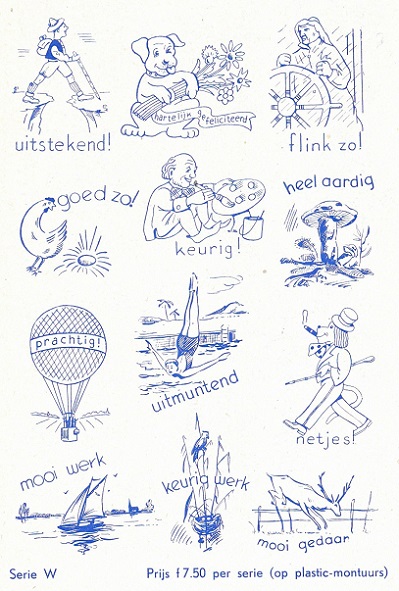 uitstekend!
hartelijk gefeliciteerd
flink zo!
goed zo!
keurig!
heel aardig
prachtig!
uitmuntend
netjes!
mooi werk
keurig werk
mooi gedaan
Serie W
Prijs f 7.50 per serie (op plastic-montuurs)